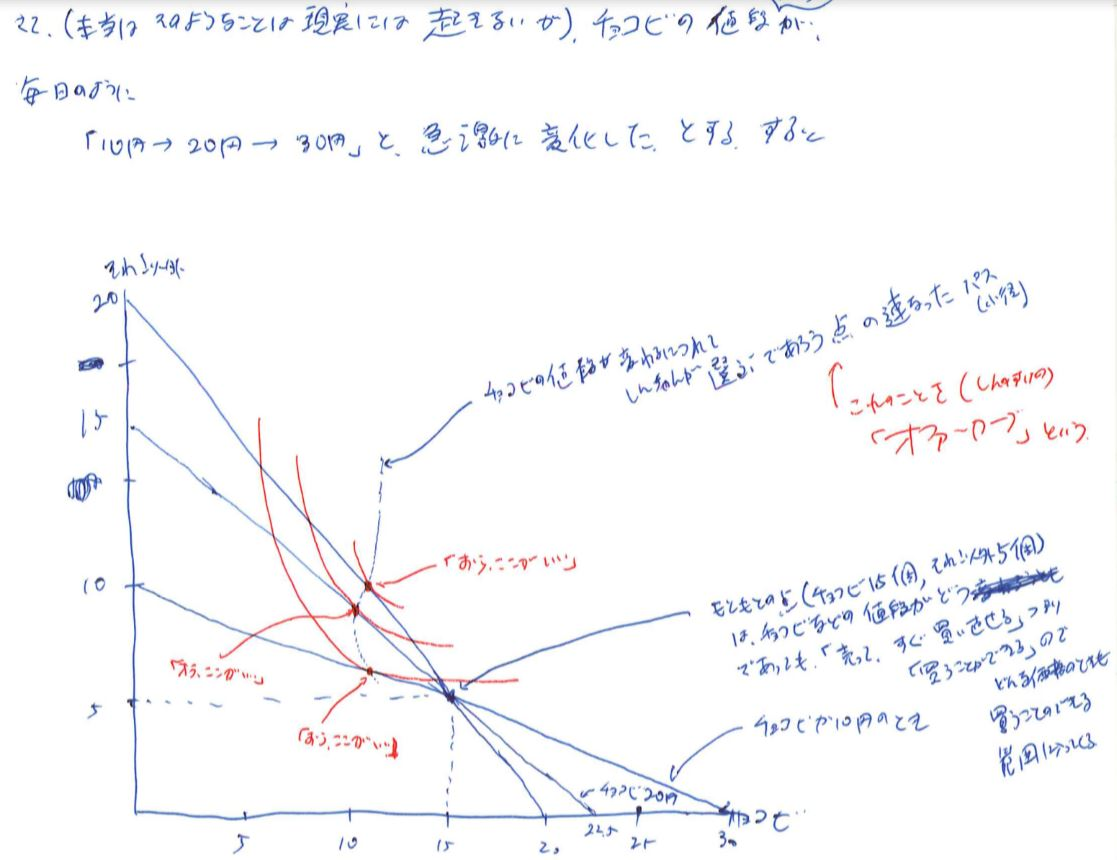 22. (本当はそのようなことは現実には起きないが)、チョコビの値段が、
毎日のように
「10円→20円→30円」と、急激に変化した、とする。すると
それ以外
20
15
10
5
チョコビの値段が変わるにつれて
しんちゃんが選ぶであろう点の連なったパス
(小径)
これのことを(しんのすけの)
「オファーカーブ」という
「おら、ここがいい」
「オラ、ここがいい」
「おら、ここがいい」
もともとの点(チョコビ15個、それ以外5個)
は、チョコビなどの値段がどう
であっても、「売って、すぐ買いなおせる」つまり
「買うことができる」ので
どんな価格のときも
買うことのできる
範囲に入ってくる
チョコビが10円のとき
チョコビ20円
チョコビ
5
10
15
20
22.5
25
30